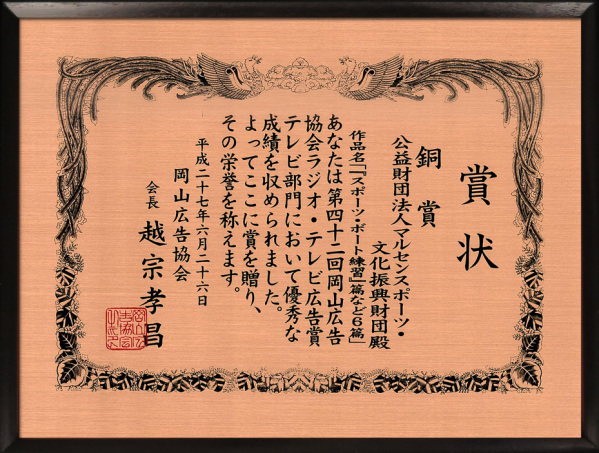 賞状
銅賞
公益財団法人マルセンスポーツ・
文化振興財団殿
作品名「『スポーツ・ボート練習』篇など6篇」
あなたは第四十二回岡山広告
協会ラジオ・テレビ広告賞
テレビ部門において優秀な
成績を収められました。
よってここに賞を贈り、
その栄誉を称えます。
平成二十七年六月二十六日
岡山広告協会
会長 越宗孝昌